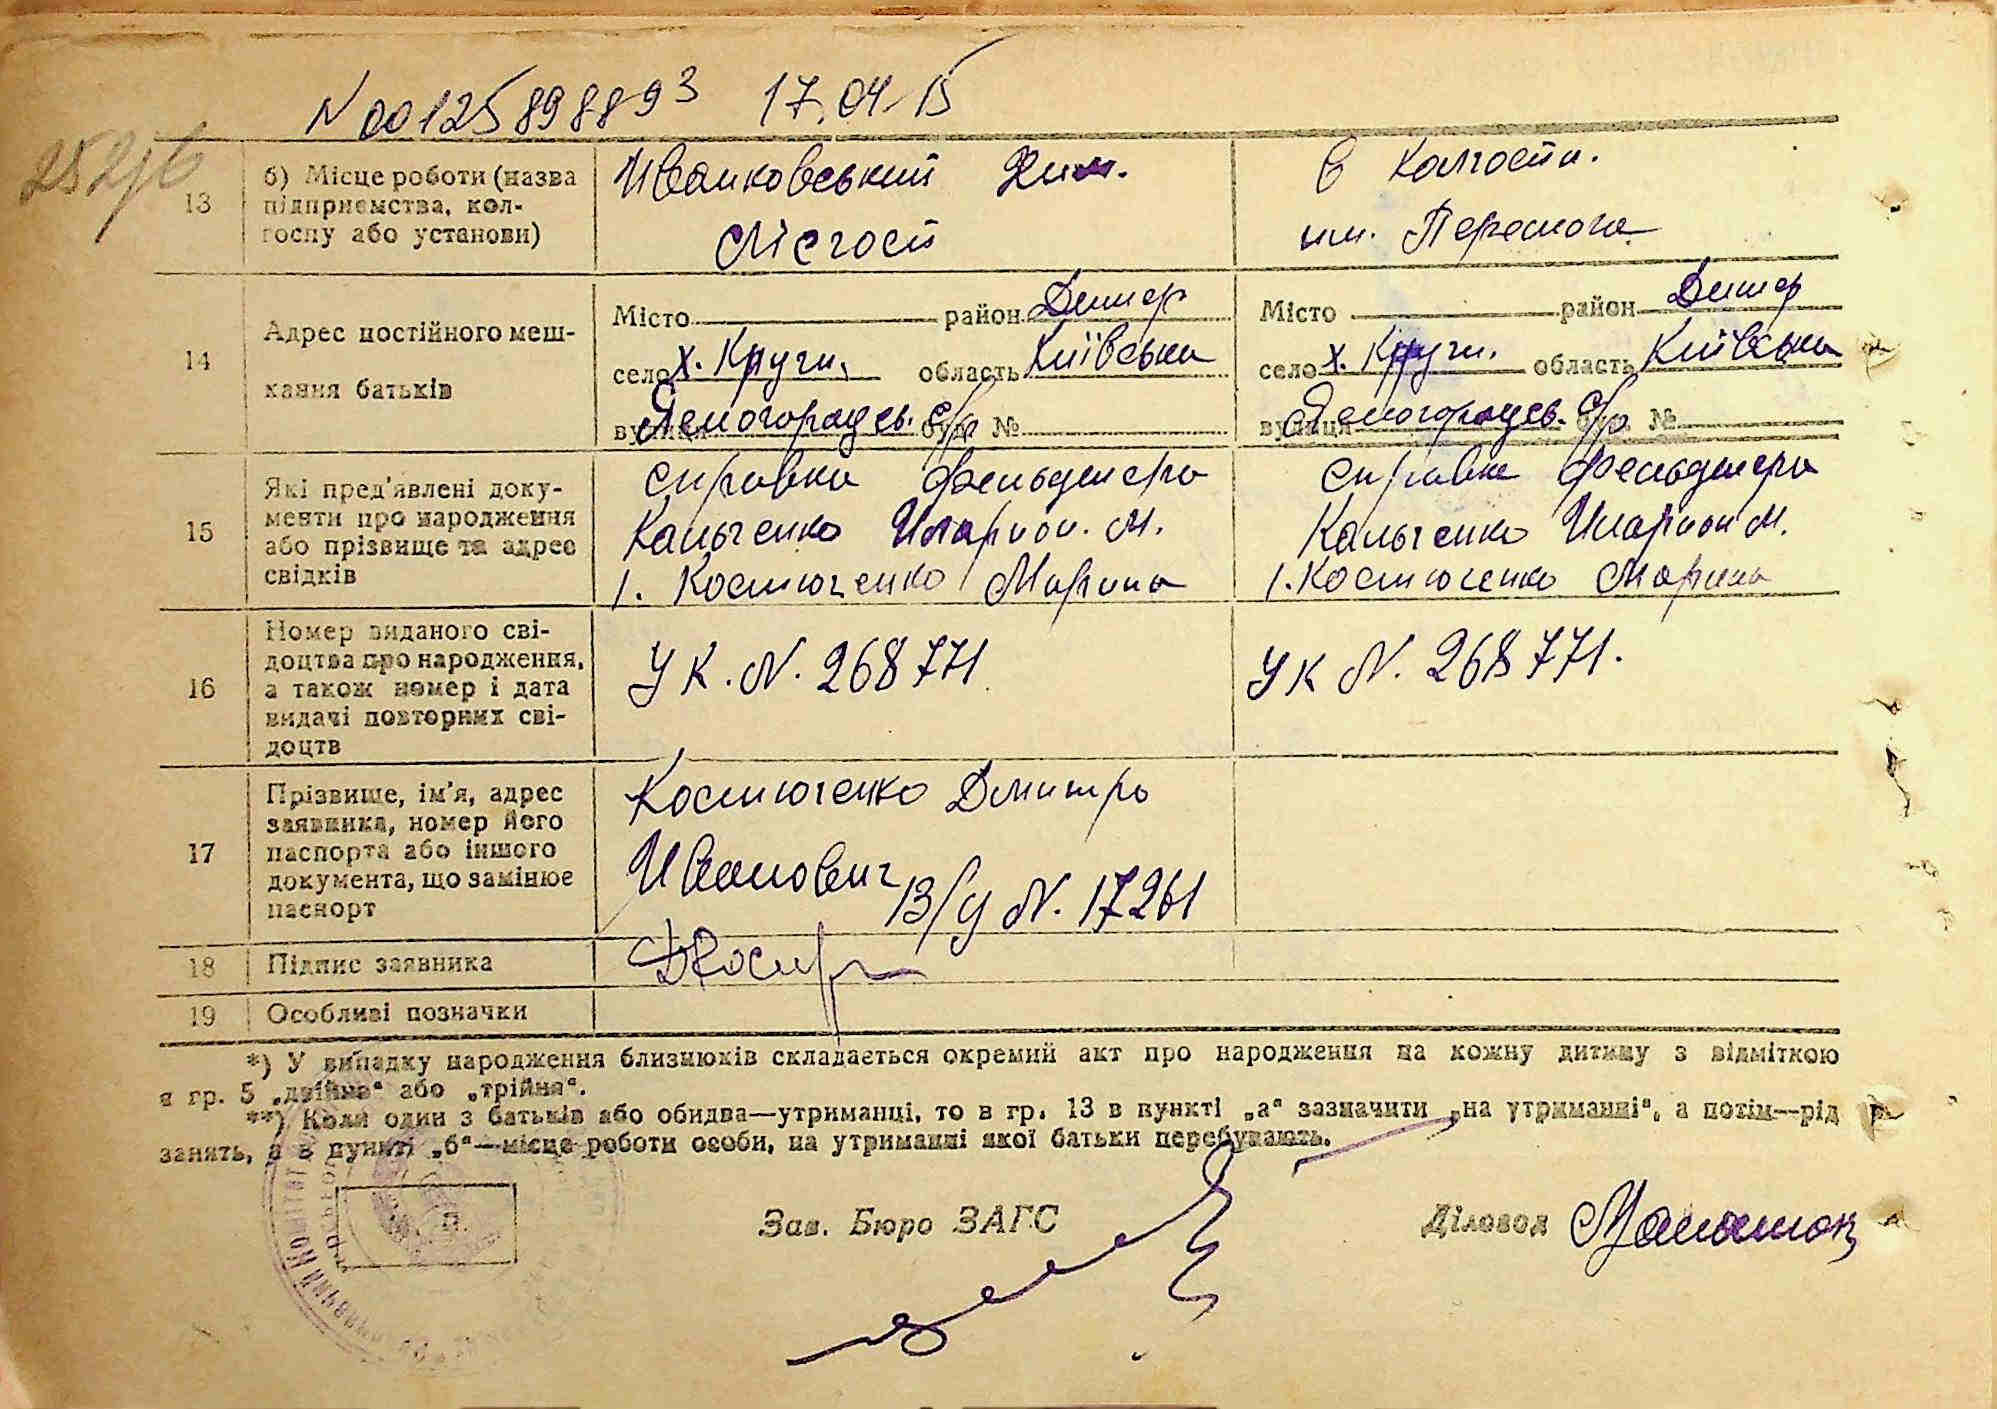 N 00125898893 17.04.15
252/6
13 б) Місце роботи (назва підприємства, колгоспу або установи)
Иванковський Хим. Лісгосп
в колгоспи. им. Перемога
14 Адрес постійного мешкання батьків
Місто район Димер
село х. Круги. область Київська
вулиця Ясногородцьк. с/р буд. №
Місто район Димер
село х. Круги. область Київська
вулиця Ясногородцьк. с/р буд. №
15 Які пред'явлені документи про народження або прізвище та адрес свідків
справка фельдшера
Кальченко Иларион. М.
1. Костюченко Марина
справка фельдшера
Кальченко Иларион М.
1. Костюченко Марина
16 Номер виданого свідоцтва про народження, а також номер і дата видачі повторних свідоцтв
УК. N. 268771
УК N. 268771.
17 Прізвище, ім'я, адрес заявника, номер його паспорта або іншого документа, що замінює паспорт
Костюченко Дмитро
Иванович В/у N. 17261
18 Підпис заявника
19 Особливі позначки
*) У випадку народження близнюків складається окремий акт про народження на кожну дитину з відміткою
в гр. 5 „двійня“ або „трійня“.
**) Коли один з батьків або обидва—утриманці, то в гр. 13 в пункті „а“ зазначити „на утриманні“, а потім—рід
занять, а в пункті „б“—місце роботи особи, на утриманні якої батьки перебувають.
П.
Зав. Бюро ЗАГС
Діловод